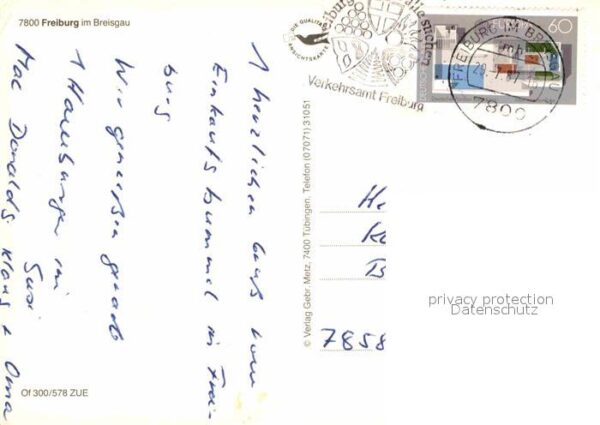 7800 Freiburg im Breisgau
1 herzlichen Gruß vom
Einkaufsbummel in Frei-
burg
Wir genießen gerade
1 Hamburger im
Mac Donalds. Klaus + Oma
Susi
Of 300/578 ZUE
© Verlag Gebr. Metz, 7400 Tübingen, Telefon (07071) 31051
DIE QUALITÄTS
ANSICHTSKARTE
Verkehrsamt Freiburg
EUROPA
60
DEUTSCHE
FREIBURG IM BREISGAU
mb
7800
7858
privacy protection
Datenschutz